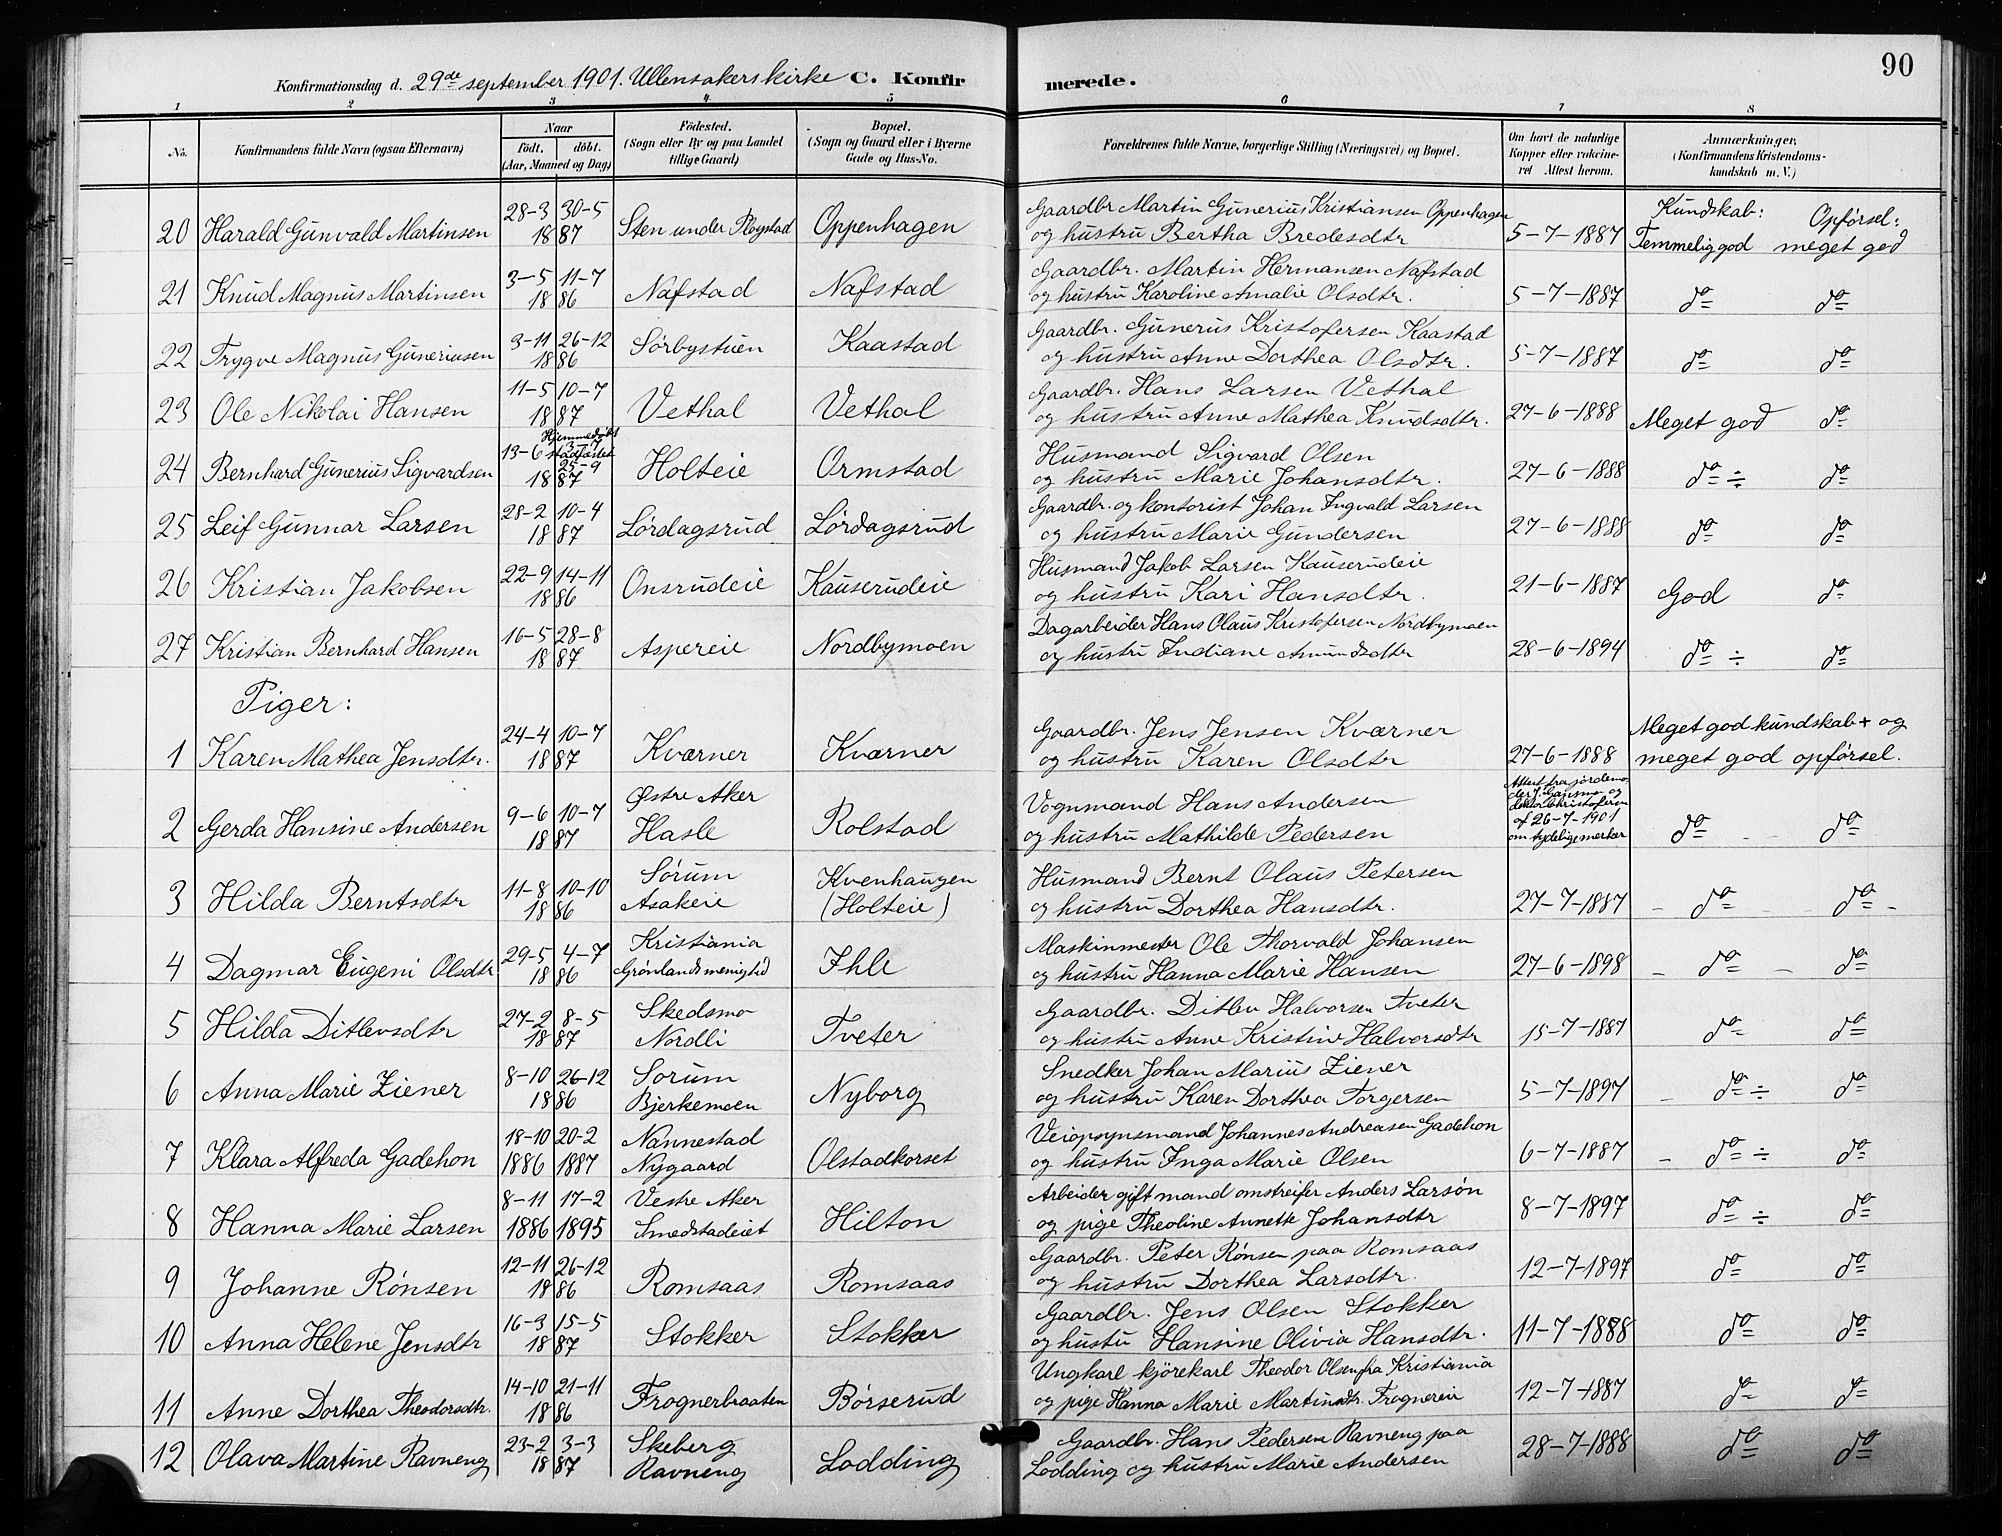 90
Konfirmationsdag d. 29de september 1901. Ullensakers kirke C. Konfirmerede.
1 2 3 4 5 6 7 8
No. Konfirmandens fulde Navn (ogsaa Efternavn) Naar født. døbt. (Aar, Maaned og Dag) Födested. (Sogn eller By og paa Landet tillige Gaard) Bopæl. (Sogn og Gaard eller i Byerne Gade og Hus-No. Forældrenes fulde Navne, borgerlige Stilling (Næringsvei) og Bopæl. Om havt de naturlige Kopper eller vaccineret Attest herom. Anmærkninger, (Konfirmandens Kristendomskundskab m. V.)
Kundskab: Opførsel:
20 Harald Gunvald Martinsen 28-3 1887 30-5 Sten under Plogstad Oppenhagen Gaardbr Martin Gunerius Kristiansen Oppenhagen
og hustru Bertha Bredesdtr 5-7-1887 Temmelig god meget god
21 Knud Magnus Martinsen 3-5 11-7 1886 Nafstad Nafstad Gaardbr. Martin Hermansen Nafstad
og hustru Karoline Amalie Olsdtr. 5-7-1887 do do
22 Trygve Magnus Guneriusen 3-11 26-12 1886 Sørbystuen Kaastad Gaardbr. Gunerus Kristofersen Kaastad
og hustru Anne Dorthea Olsdtr. 5-7-1887 do do
23 Ole Nikolai Hansen 11-5 10-7 1887 Vethal Vethal Gaardbr. Hans Larsen Vethal
og hustru Anne Mathea Knudsdtr. 27-6-1888 Meget god do
24 Bernhard Gunerius Sigvardsen 13-6 Hjemmedøbt 3-7 stadfæstet 25-9 1887 Holteie Ormstad Husmand Sigvard Olsen
og hustru Marie Johansdtr. 27-6-1888 do ÷ do
25 Leif Gunnar Larsen 28-2 10-4 1887 Lørdagsrud Lørdagsrud Gaardbr. og kontorist Johan Ingvald Larsen
og hustru Marie Gundersen 27-6-1888 do do
26 Kristian Jakobsen 22-9 14-11 1886 Onsrudeie Kauserudeie Husmand Jakob Larsen Kauserudeie
og hustru Kari Hansdtr. 21-6-1887 God do
27 Kristian Bernhard Hansen 16-5 28-8 1887 Aspereie Nordbymoen Dagarbeider Hans Olaus Kristofersen Nordbymoen
og hustru Indiane Amundsdtr 28-6-1894 do ÷ do
Piger:
1 Karen Mathea Jensdtr. 24-4 10-7 1887 Kværner Kværner Gaardbr. Jens Jensen Kværner
og hustru Karen Olsdtr 27-6-1888 Meget god kundskab + og meget god opførsel.
2 Gerda Hansine Andersen 9-6 10-7 1887 Østre Aker Hasle Rolstad Vognmand Hans Andersen
og hustru Mathilde Pedersen Attest fra jordemoder J. Gansmo og doktor Christofersen af 26-7-1901 om tydelige merker do do
3 Hilda Berntsdtr 11-8 10-10 1886 Sørum Asakeie Kvenhaugen (Holteie) Husmand Bernt Olaus Petersen
og hustru Dorthea Hansdtr. 27-7-1887 do do
4 Dagmar Eugeni Olsdtr 29-5 4-7 1886 Kristiania Grønlands menighed Ihle Maskinmester Ole Thorvald Johansen
og hustru Hanna Marie Hansen 27-6-1898 do do
5 Hilda Ditlevsdtr 27-2 8-5 1887 Skedsmo Nordli Tveter Gaardbr. Ditlev Halvorsen Tveter
og hustru Anne Kristine Halvorsdtr 15-7-1887 do do
6 Anna Marie Ziener 8-10 26-12 1886 Sorum Bjerkemoen Nyborg Snedker Johan Marius Ziener
og hustru Karen Dorthea Torgersen 5-7-1897 do ÷ do
7 Klara Alfreda Gadehon 18-10 1886 20-2 1887 Nannestad Nygaard Olstadkorset Veiopsynsmand Johannes Andreasen Gadehon
og hustru Inga Marie Olsen 6-7-1887 do ÷ do
8 Hanna Marie Larsen 8-11 1886 17-2 1895 Vestre Aker Smedstadeiet Hilton Arbeider gift mand omstreifer Anders Larsøn
og pige Theoline Annette Johansdtr 8-7-1897 do ÷ do
9 Johanne Rønsen 12-11 26-12 1886 Romsaas Romsaas Gaardbr. Peter Rønsen paa Romsaas
og hustru Dorthea Larsdtr. 12-7-1897 do do
10 Anna Helene Jensdtr 16-3 15-5 1887 Stokker Stokker Gaardbr. Jens Olsen Stokker
og hustu Hansine Olivia Hansdtr. 11-7-1888 do do
11 Anne Dorthea Theodorsdtr. 14-10 21-11 1886 Frognerbraaten Børserud Ungkarl kjörekarl Theodor Olsen fra Kristiania
og pige Hanna Marie Martinsdtr. Frognereie 12-7-1887 do do
12 Olava Martine Ravneng 23-2 3-3 1887 Skeberg Ravneng Lodding Gaardbr. Hans Pedersen Ravneng paa
Lodding og hustru Marie Andersen 28-7-1888 do do